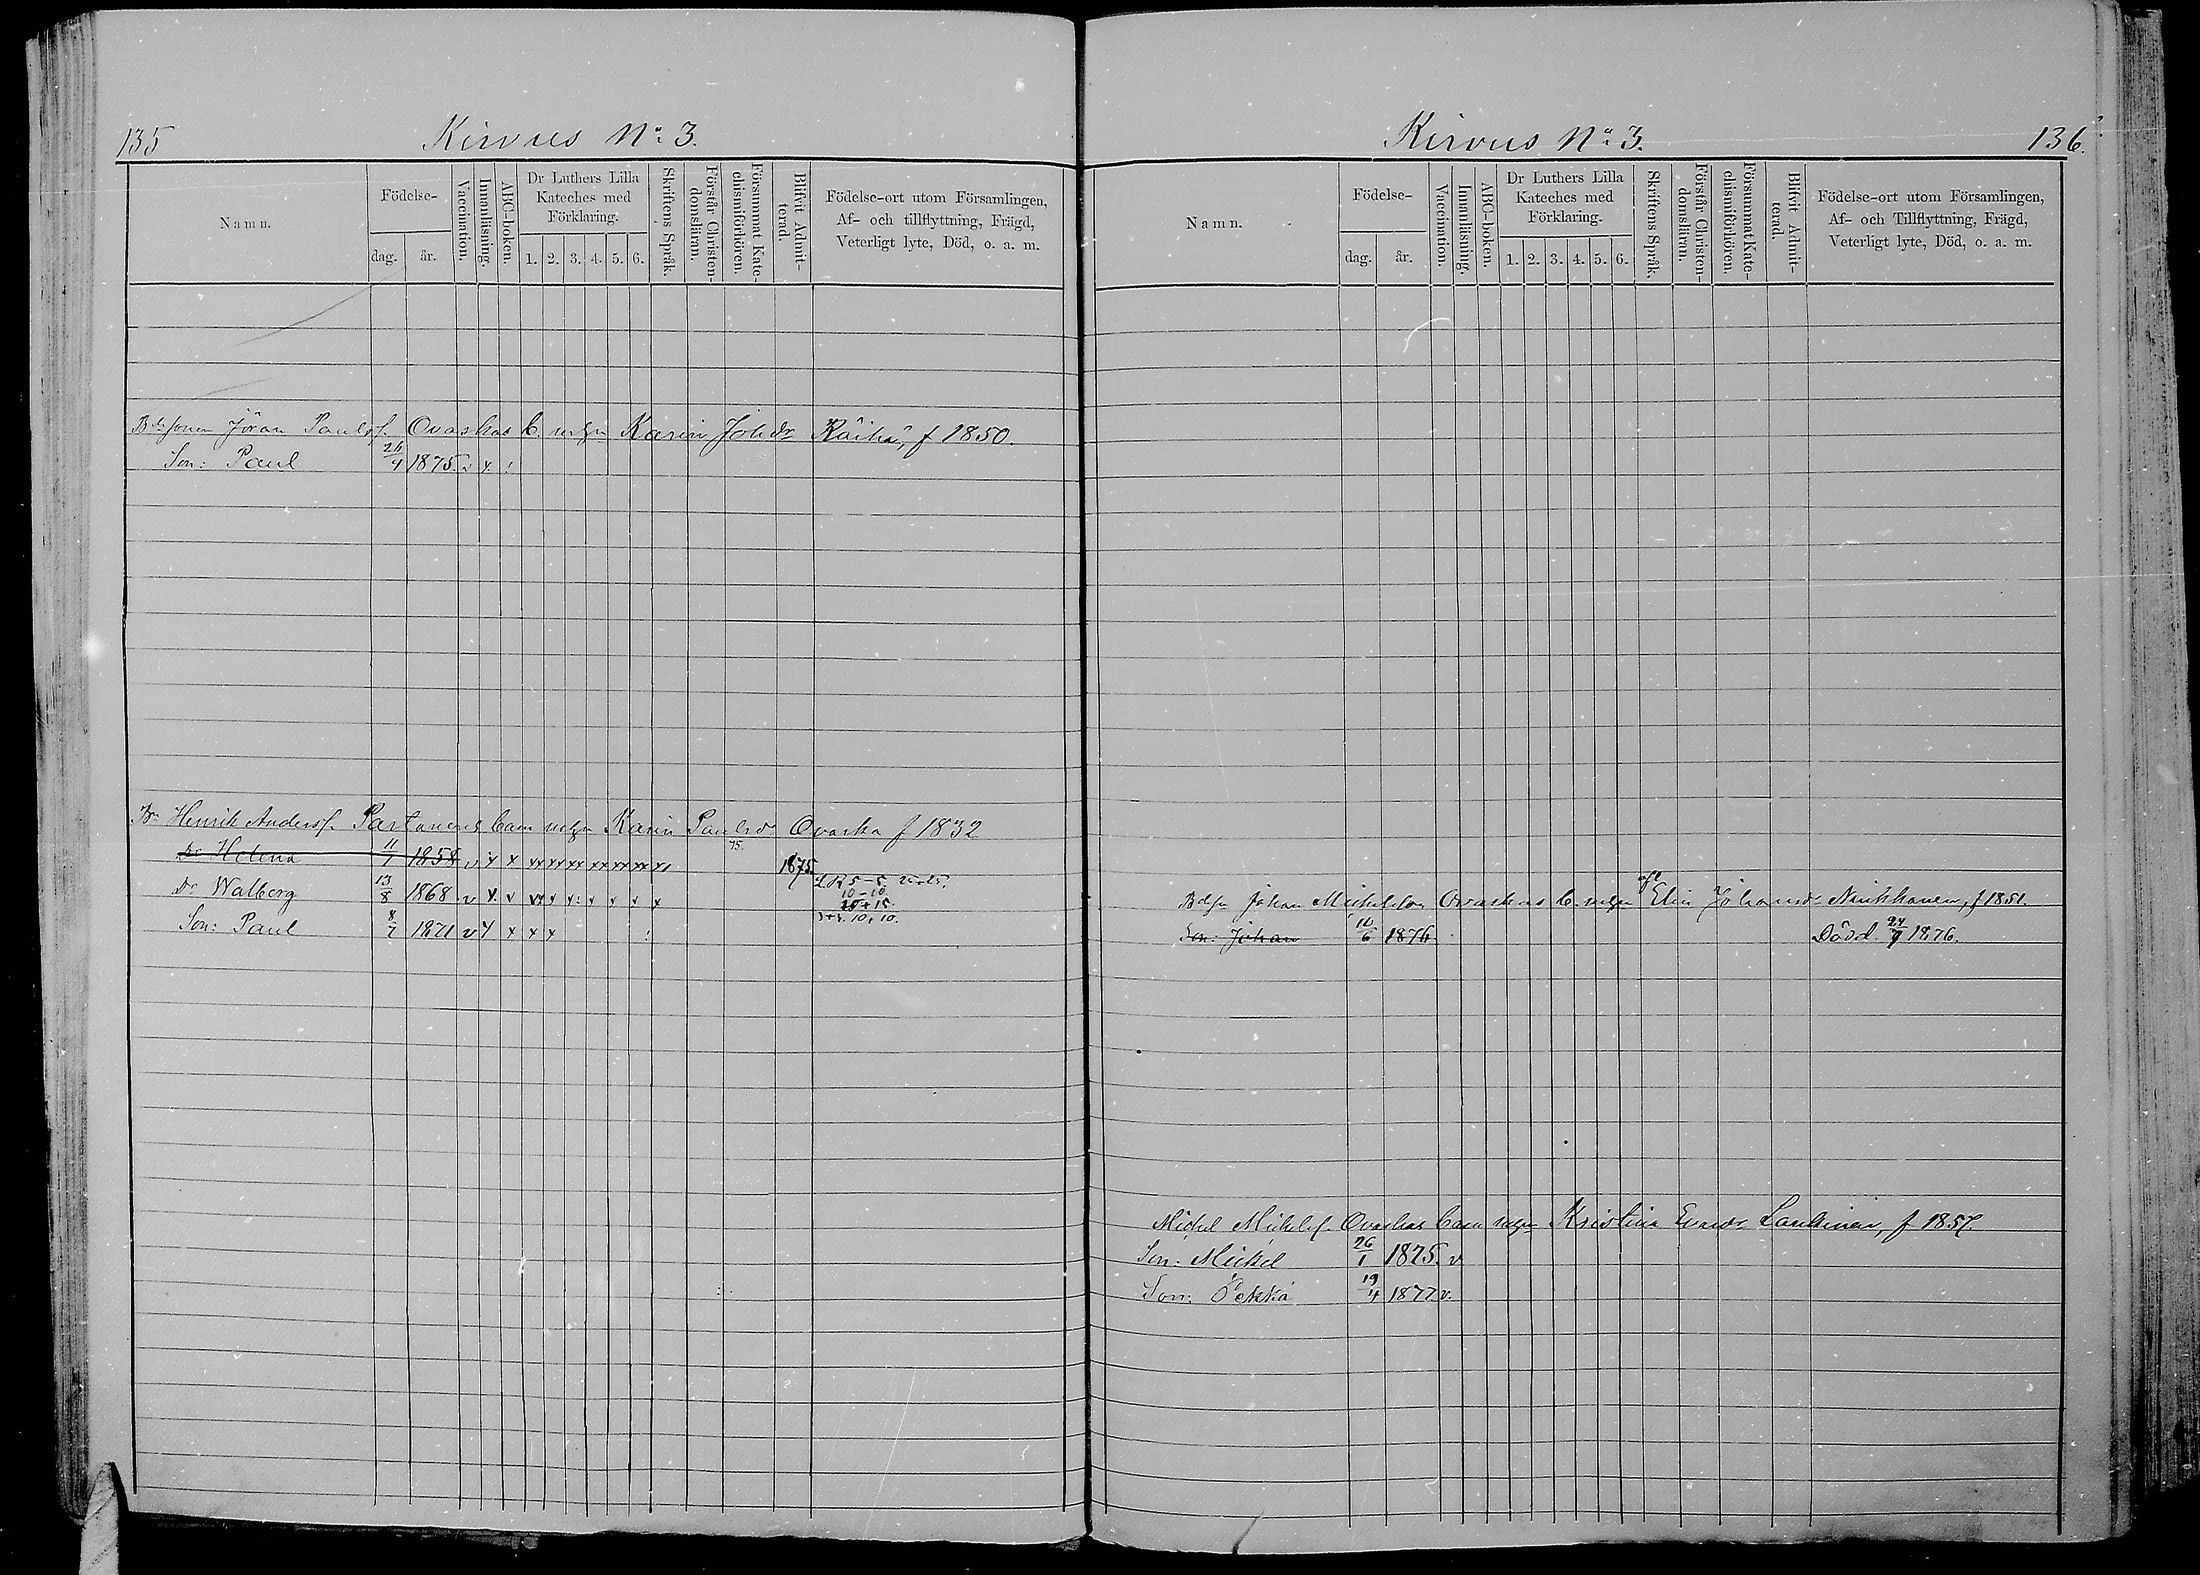 135
Kirvus No 3.
Namn.
Födelse-
dag.
år.
Vaccination.
Innanläsning.
ABC-boken.
Dr Luthers Lilla
Kateches med
Förklaring.
1. 2. 3. 4. 5. 6.
Skriftens Språk.
Förstår Christen-
domsläran.
Försummat Kate-
chismiförhören.
Blifvit Admit-
tend.
Födelse-ort utom Församlingen,
Af- och tillflyttning, Frägd,
Veterligt lyte, Död, o. a. m.
Jöran Paulsf. Ovaskas b. m. hn Karin Johdr Räihä, f 1850.
Son: Paul 26/4 1875. v x
Henrik Andersf. Partanens barn m. hn Karin Paulsdr Ovaska f 1832
Dr Helena 11/1 1858 v x x xx xx xx xx xx xx x 75. 1875
Dr Walborg 13/8 1868 v
10-10
Son: Paul 8/7 1871 v x x x x
10, 10.
Kirvus No 3.
136.
Namn.
Födelse-
dag.
år.
Vaccination.
Innanläsning.
ABC-boken.
Dr Luthers Lilla
Kateches med
Förklaring.
1. 2. 3. 4. 5. 6.
Skriftens Språk.
Förstår Christen-
domsläran.
Försummat Kate-
chismiförhören.
Blifvit Admit-
tend.
Födelse-ort utom Församlingen,
Af- och Tillflyttning, Frägd,
Veterligt lyte, Död, o. a. m.
Johan Ovaskas b. m. hn Elin Johansdr f 1851.
Son: Johan 10/6 1876. Död 1876.
Michel Michelsf. Ovaskas barn m. hn Kristina f 1857
Son: Mickel 26/1 1875. v
Son: Pekka 19/4 1877. v.